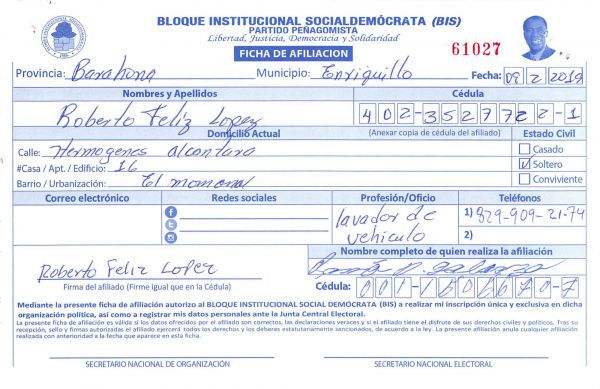 BLOQUE INSTITUCIONAL SOCIALDEMÓCRATA (BIS)
PARTIDO PEÑAGOMISTA
Libertad, Justicia, Democracia y Solidaridad
FICHA DE AFILIACION
61027
Provincia: Barahona Municipio: Enriquillo Fecha: 09/2/2019
Nombres y Apellidos Cédula
Roberto Feliz Lopez 402-3527722-1
Domicilio Actual (Anexar copia de cédula del afiliado) Estado Civil
Calle: Hermogenes alcantara Casado
#Casa / Apt. / Edificio: 16 Soltero
Barrio / Urbanización: El Conviviente
Correo electrónico Redes sociales Profesión/Oficio Teléfonos
lavador de vehiculo
1) 829-909-21-74
2)
Nombre completo de quien realiza la afiliación
Roberto Feliz Lopez
Firma del afiliado (Firme igual que en la Cédula)
Cédula: 001-
Mediante la presente ficha de afiliación autorizo al BLOQUE INSTITUCIONAL SOCIAL DEMÓCRATA (BIS) a realizar mi inscripción única y exclusiva en dicha
organización política, así como a registrar mis datos personales ante la Junta Central Electoral.
La presente ficha de afiliación es válida si los datos ofrecidos por el afiliado son correctos, las declaraciones veraces y si el afiliado tiene el disfrute de sus derechos civiles y políticos. Tras su
recepción, sello y firmas autorizadas el afiliado ejercerá todos los derechos y los deberes estatutariamente sancionados, de acuerdo a la ley. La presente afiliación anula cualquier afiliación
realizada con anterioridad a la fecha que aparece en esta ficha.
SECRETARIO NACIONAL DE ORGANIZACIÓN SECRETARIO NACIONAL ELECTORAL